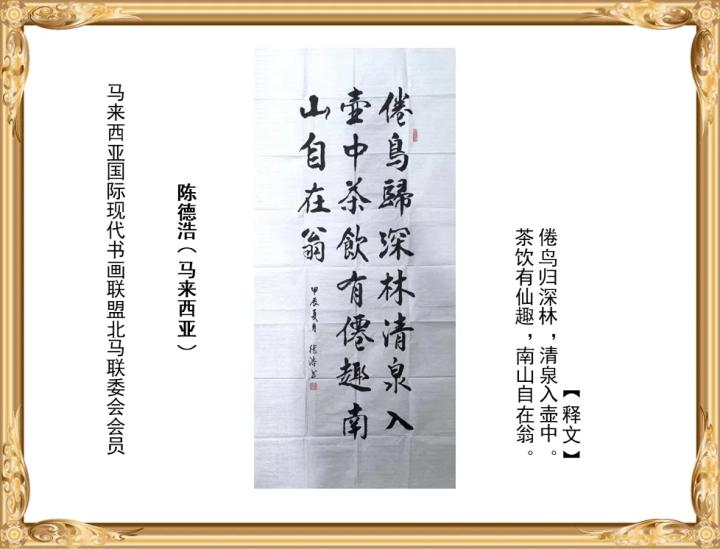 倦鳥歸深林清泉入
壺中茶飲有僊趣南
山自在翁
甲辰夏月 德浩书
【释文】
倦鸟归深林，清泉入壶中。
茶饮有仙趣，南山自在翁。
陈德浩（马来西亚）
马来西亚国际现代书画联盟北马联委会会员